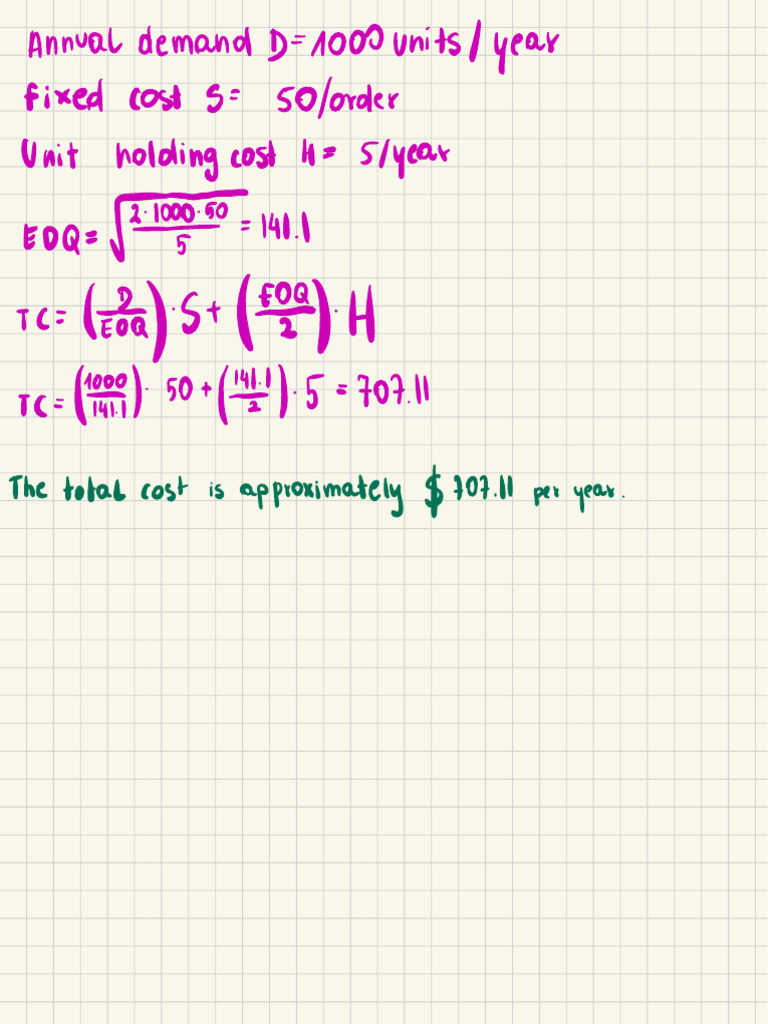 Annual demand D=1000 units/year
fixed cost S= 50/order
Unit holding cost H= 5/year
EOQ= √(2·1000·50 / 5) = 141.1
TC= (D/EOQ)·S+ (EOQ/2)·H
TC= (1000/141.1)· 50 + (141.1/2)·5 = 707.11
The total cost is approximately $707.11 per year.